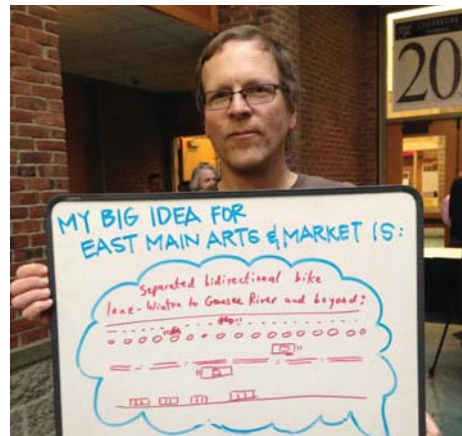 20
MY BIG IDEA FOR
EAST MAIN ARTS & MARKET IS:
Separated bidirectional bike
lane - Winton to Genesee River and beyond: